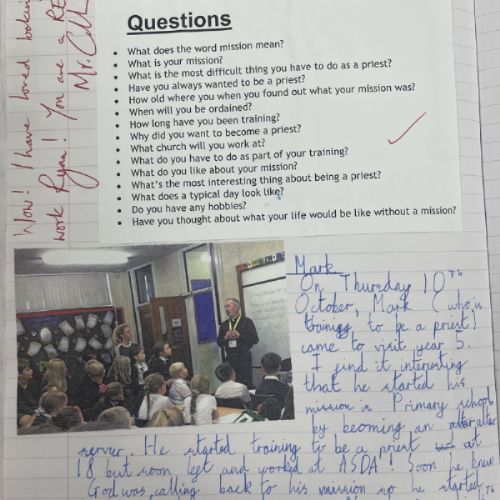 Wow! I have loved
work Ryan! You are a RE
Mr. C
Questions
• What does the word mission mean?
• What is your mission?
• What is the most difficult thing you have to do as a priest?
• Have you always wanted to be a priest?
• How old where you when you found out what your mission was?
• When will you be ordained?
• How long have you been training?
• Why did you want to become a priest?
• What church will you work at?
• What do you have to do as part of your training?
• What do you like about your mission?
• What's the most interesting thing about being a priest?
• What does a typical day look like?
• Do you have any hobbies?
• Have you thought about what your life would be like without a mission?
Mark
On Thursday 10th
October, Mark (who is
training to be a priest)
came to visit year 5.
I find it interesting
that he started his
mission in Primary school
by becoming an alter
server. He started training to be a priest at
18 but soon left and worked at ASDA! Soon he knew
God was calling back to his mission so he started